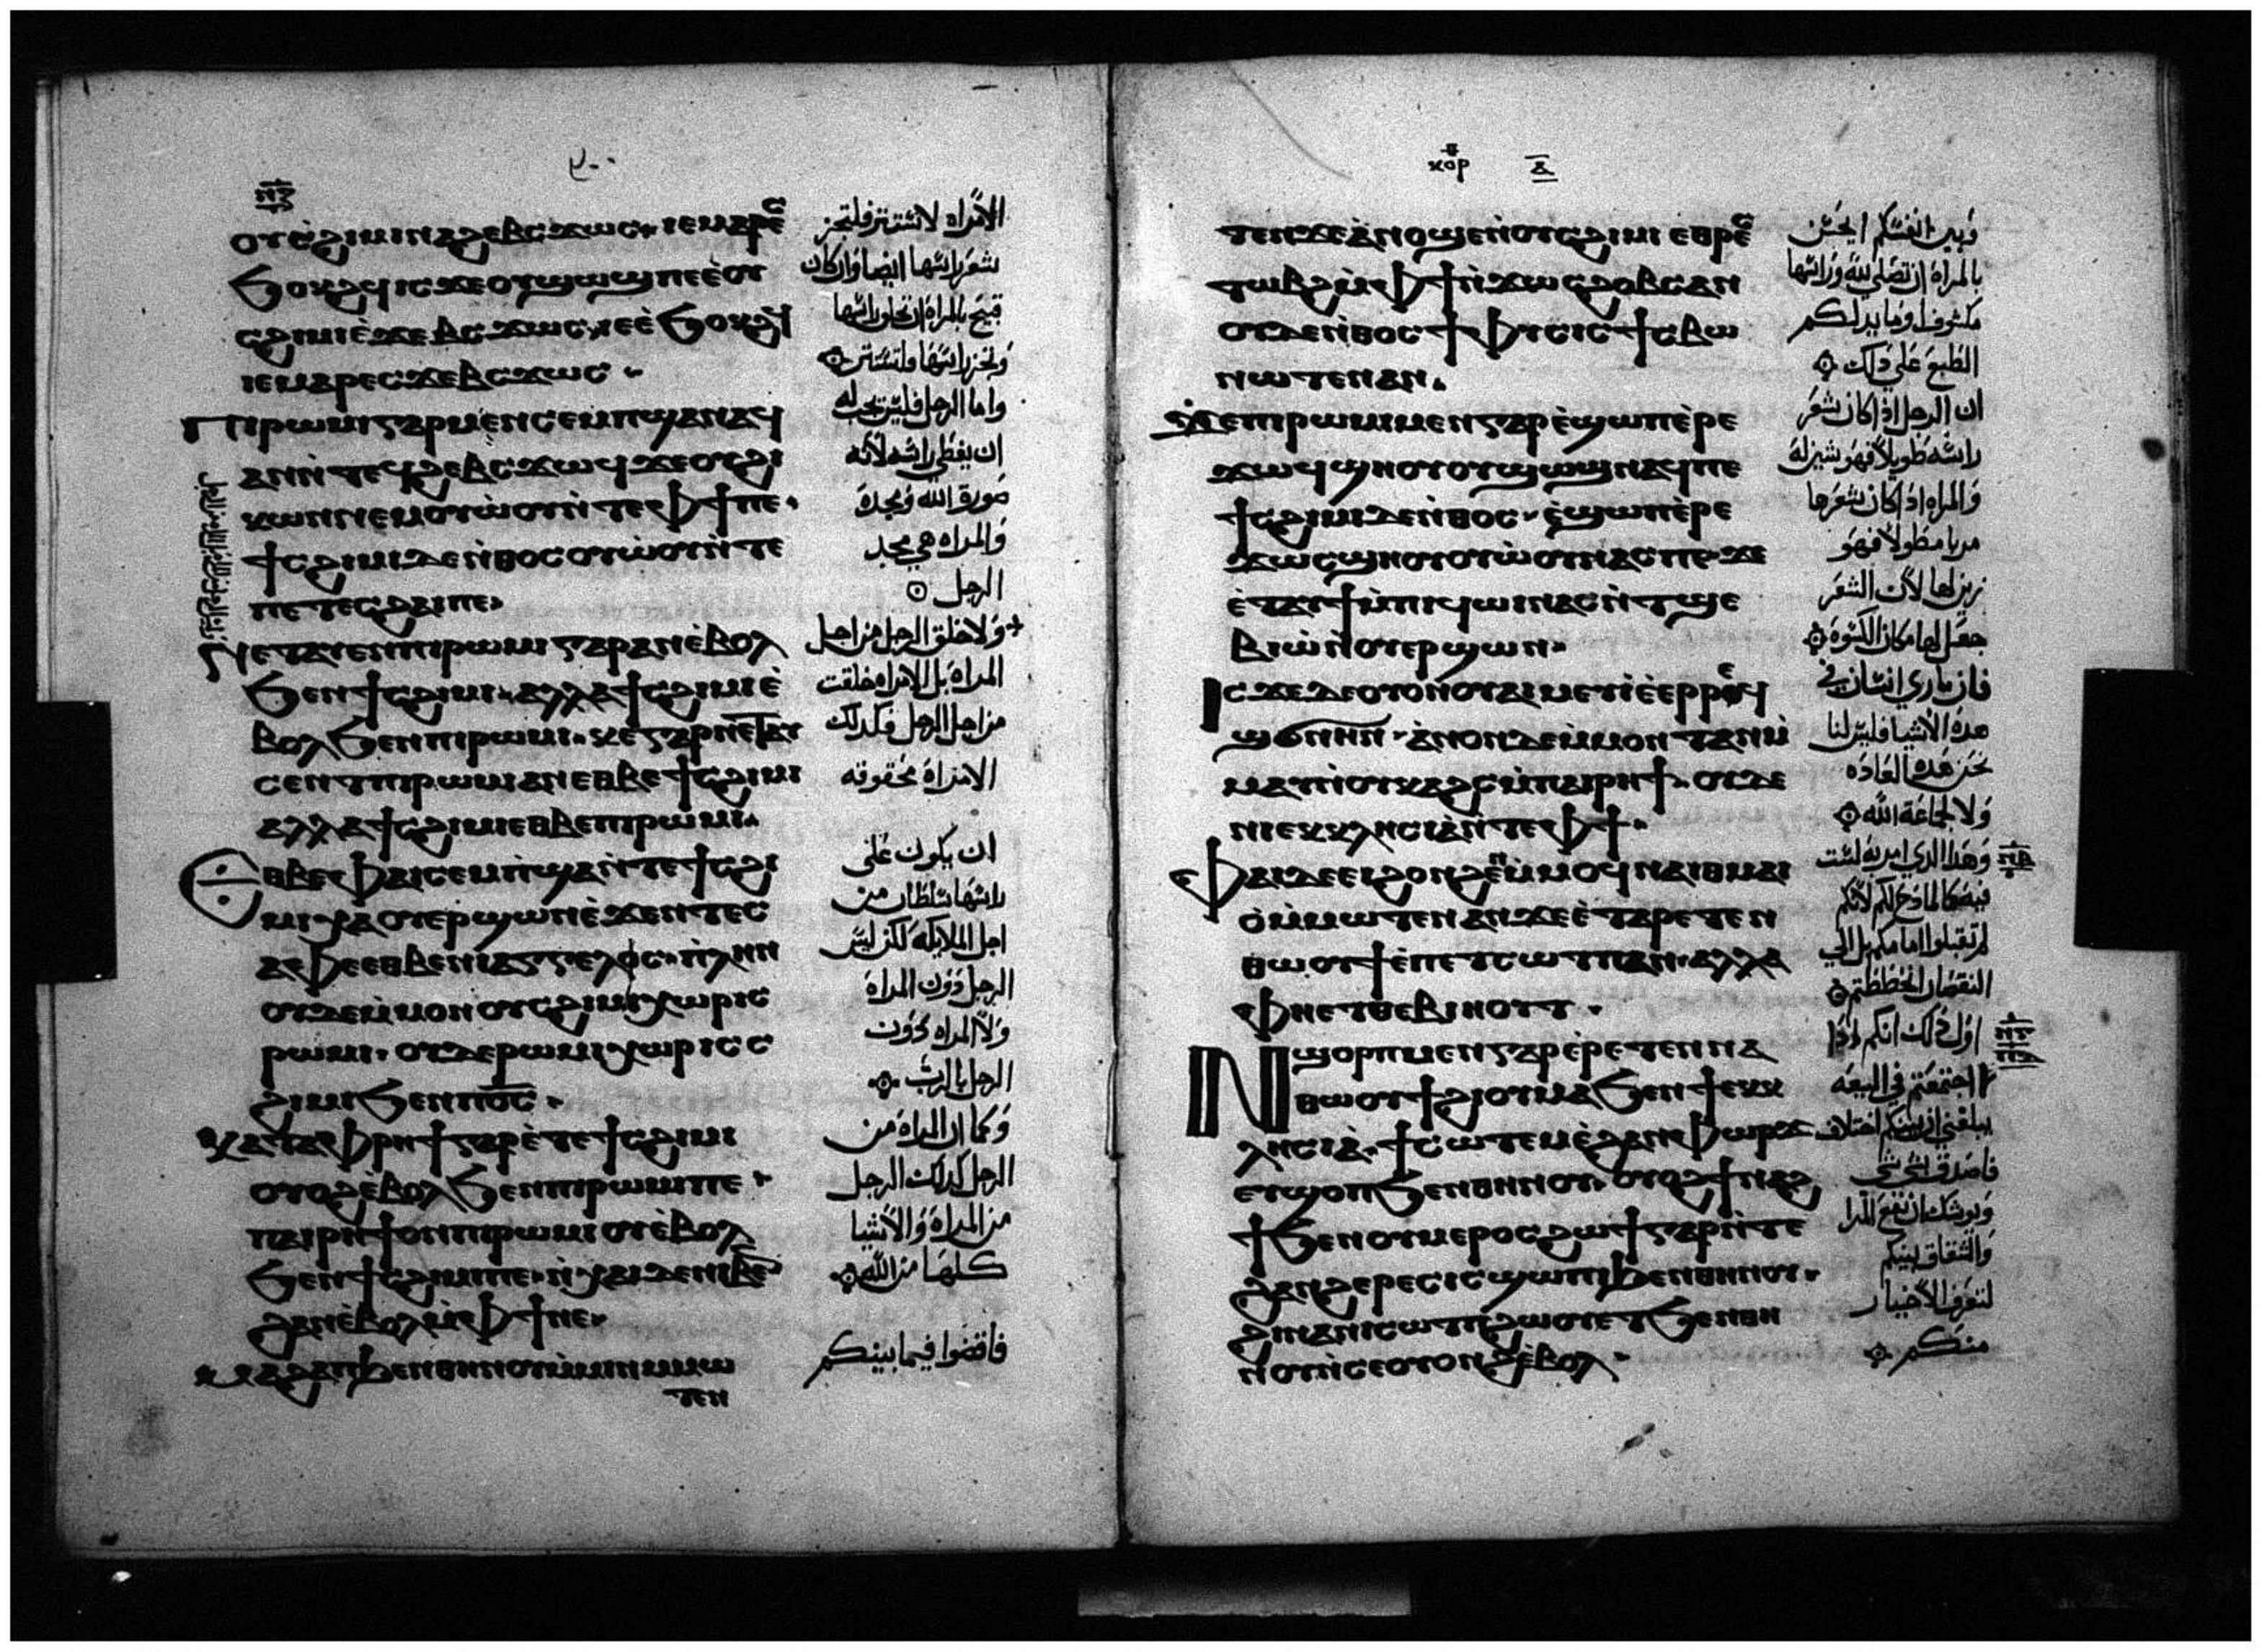 ⲛ̅ⲍ̅
ⲟⲩⲥ̀ϩⲓⲙⲓ ⲛⲁϩⲉⲃⲥ ϫⲱⲥ ⲓⲉ ⲙⲁⲣⲉⲥ
ϧⲟⲕϩ ⲓⲥϫⲉ ⲟⲩϣⲱϣ ⲡⲉ ⲉ̀ⲟⲩ
ⲥϩⲓⲙⲓ ⲉ̀ϫⲉⲃⲥ ϫⲱⲥ ⲓⲉ ⲉ̀ϧⲟⲕϩ
ⲓⲉ ⲙⲁⲣⲉⲥϫⲉⲃⲥ ϫⲱⲥ
Ⲡⲓⲣⲱⲙⲓ ⲅⲁⲣ ⲙⲉⲛ ⲥⲉⲙⲡϣⲁ ⲛⲁϥ
ⲁⲛ ⲛ̀ⲧⲉϥϩⲉⲃⲥ ϫⲱϥ ϫⲉ ⲟⲩϩⲓ
ⲕⲱⲛ ⲛⲉⲙ ⲟⲩⲱ̀ⲟⲩ ⲛ̀ⲧⲉ ⲫϯ ⲡⲉ
ϯⲥϩⲓⲙⲓ ⲇⲉ ⲛ̀ⲑⲟⲥ ⲟⲩⲱ̀ⲟⲩ ⲛ̀ⲧⲉ
ⲡⲉⲧⲉⲥϩⲁⲓ ⲡⲉ
Ⲛⲉⲧⲁⲓⲉⲛ ⲡⲓⲣⲱⲙⲓ ⲅⲁⲣ ⲁⲛ ⲉ̀ⲃⲟⲗ
ϧⲉⲛ ϯⲥϩⲓⲙⲓ ⲁⲗⲗⲁ ϯⲥϩⲓⲙⲓ ⲉ̀
ⲃⲟⲗ ϧⲉⲛ ⲡⲓⲣⲱⲙⲓ ⲕⲉ ⲅⲁⲣ ⲛⲉⲧⲁⲩ
ⲥⲉⲛⲧ ⲡⲓⲣⲱⲙⲓ ⲁⲛ ⲉⲑⲃⲉ ϯⲥϩⲓⲙⲓ
ⲁⲗⲗⲁ ϯⲥϩⲓⲙⲓ ⲉⲑⲃⲉ ⲡⲓⲣⲱⲙⲓ
Ⲉⲑⲃⲉ ⲫⲁⲓ ⲥⲉⲙⲡϣⲁ ⲛ̀ⲧⲉ ϯⲥϩⲓ
ⲙⲓ ⲭⲁ ⲟⲩⲉⲣϣⲱⲛ ⲉ̀ϫⲉⲛ ⲧⲉⲥ
ⲁⲫⲉ ⲉⲑⲃⲉ ⲛⲓⲁⲅⲅⲉⲗⲟⲥ ⲡⲗⲏⲛ
ⲟⲩⲇⲉ ⲙ̀ⲙⲟⲛ ⲟⲩⲥϩⲓⲙⲓ ⲭⲱⲣⲓⲥ
ⲣⲱⲙⲓ ⲟⲩⲇⲉ ⲣⲱⲙⲓ ⲭⲱⲣⲓⲥ ⲥ
ϩⲓⲙⲓ ϧⲉⲛ ⲡⲟ̅ⲥ̅
Ⲕⲁⲧⲁ ⲫⲣⲏϯ ⲅⲁⲣ ⲉ̀ⲧⲉ ϯⲥϩⲓⲙⲓ
ⲟⲩⲟϩ ⲉ̀ⲃⲟⲗ ϧⲉⲛ ⲡⲓⲣⲱⲙⲓ ⲡⲉ
ⲡⲁⲓⲣⲏϯ ⲟⲛ ⲡⲓⲣⲱⲙⲓ ⲟⲩⲉ̀ⲃⲟⲗ
ϧⲉⲛ ϯⲥϩⲓⲙⲓ ⲡⲉ ⲛ̀ⲭⲁⲓ ⲇⲉ ⲛⲓⲃⲉⲛ
ϩⲁⲛⲉ̀ⲃⲟⲗ ⲙ̀ⲫϯ ⲛⲉ
Ⲙⲁϩⲁⲡ ϧⲉⲛ ⲑⲏⲛⲟⲩ ⲙ̀ⲙⲓⲛ ⲙ̀ⲙⲱ
ⲧⲉⲛ
الامراه لاتستتر فلتجز
شعر راسها ايضا وان كان
قبيح بالمراه ان تحلق راسها
وتجز راسها فلتستتر
واما الرجل فليس يجب له
ان يغطي راسه لانه
صورة الله ومجده
والمراه هي مجد
الرجل
ولا خلق الرجل من اجل
المراه بل الامراه خلقت
من اجل الرجل فكدلك
الامراة محقوقه
ان يكون علي
راسها سلطان من
اجل الملايكه لكن ليس
الرجل دون المراه
ولا المراه دون
الرجل بالرب
وكما ان المراه من
الرجل كدلك الرجل
من المراه والاشيا
كلها من الله
فاقضوا فيما بينكم
ⲕⲟⲣ ⲁ̅
ⲧⲉⲛ ϫⲉ ⲁⲛ ⲟϣⲉⲛ ⲟⲩⲥϩⲓⲙⲓ ⲉⲑⲣⲉⲥ
ⲧⲱⲃϩ ⲙ̀ⲫϯ ⲛ̀ϫⲱⲥ ϩⲟⲃⲥ ⲁⲛ
ⲟⲩⲇⲉ ⲛ̀ⲑⲟⲥ ϯⲫⲩⲥⲓⲥ ϯⲥⲃⲱ
ⲛⲱⲧⲉⲛ ⲁⲛ
Ϫⲉ ⲡⲓⲣⲱⲙⲓ ⲙⲉⲛ ⲅⲁⲣ ⲉ̀ϣⲱⲡ ⲉ̀ⲣⲉ
ϫⲱϥ ϣⲏⲟⲩ ⲟⲩϣⲱϣ ⲛⲁϥ ⲡⲉ
ϯⲥϩⲓⲙⲓ ⲇⲉ ⲛ̀ⲑⲟⲥ ⲉ̀ϣⲱⲡ ⲉ̀ⲣⲉ
ϫⲱⲥ ϣⲏⲟⲩ ⲟⲩⲱ̀ⲟⲩ ⲛⲁⲥ ⲡⲉ ϫⲉ
ⲉ̀ⲧⲁⲩϯ ⲙ̀ⲡⲓϥⲱⲓ ⲛⲁⲥ ⲛ̀ⲧϣⲉ
ⲃⲓⲱ̀ ⲛ̀ⲟⲩⲉⲣϣⲱⲛ
Ⲓⲥϫⲉ ⲇⲉ ⲟⲩⲟⲛ ⲟⲩⲁⲓ ⲙⲉⲩⲓ̀ ⲉ̀ⲉⲣⲣⲉϥ
ϣϭⲛⲏⲛ ⲁ̀ⲛⲟⲛ ⲇⲉ ⲙ̀ⲙⲟⲛ ⲧⲁⲛ ⲙ̀
ⲙⲁⲩ ⲛ̀ⲟⲩⲕⲁϩⲥ ⲙ̀ⲡⲁⲓⲣⲏϯ ⲟⲩⲇⲉ
ⲛⲓⲉⲕⲕⲗⲏⲥⲓⲁ ⲛ̀ⲧⲉ ⲫϯ
Ⲫⲁⲓ ⲇⲉ ⲉⲓϩⲟⲛϩⲉⲛ ⲙ̀ⲙⲟϥ ⲛⲁⲓⲑⲙⲁⲓ
ⲟ̀ ⲙ̀ⲙⲱⲧⲉⲛ ⲁⲛ ϫⲉ ⲉ̀ⲧⲁⲣⲉⲧⲉⲛ
ⲑⲱⲟⲩϯ ⲉ̀ⲡⲉⲧⲥⲱⲧⲡ ⲁⲛ ⲁⲗⲗⲁ
ⲫⲏⲉⲧⲑⲉⲃⲓⲏⲟⲩⲧ
Ⲛϣⲟⲣⲡ ⲙⲉⲛ ⲅⲁⲣ ⲉ̀ⲣⲉⲧⲉⲛⲛⲁ
ⲑⲱⲟⲩϯ ϩⲓⲟⲩⲙⲁ ϧⲉⲛ ϯⲉⲕⲕ
ⲗⲏⲥⲓⲁ̀ ϯⲥⲱⲧⲉⲙ ⲉ̀ϩⲁⲛⲫⲱⲣϫ
ⲉⲩϣⲟⲡ ϧⲉⲛ ⲑⲏⲛⲟⲩ ⲟⲩⲟϩ ϯⲛⲁϩ
ϯ ϧⲉⲛ ⲟⲩⲙⲉⲣⲟⲥ ϩⲱϯ ⲅⲁⲣ ⲛ̀ⲧⲉ
ϩⲁⲛϩⲉⲣⲉⲥⲓⲥ ϣⲱⲡⲓ ϧⲉⲛ ⲑⲏⲛⲟⲩ
ϩⲓⲛⲁ ⲛⲓⲥⲱⲧⲡ ϩⲱⲟⲩ ⲉⲧϧⲉⲛ ⲑⲏ
ⲛⲟⲩ ⲛ̀ⲥⲉⲟⲩⲟⲛϩ ⲉ̀ⲃⲟⲗ
وبين انفسكم ايحسن
بالمراه ان تصلي لله وراسها
مكشوف او ما يدلكم
الطبع علي دلك
ان الرجل ادا كان شعر
راسه طويلا فهو شين له
والمراه ادا كان شعرها
مربا مطولا فهو
زين لها لان الشعر
جعل لها مكان الكسوه
فان ماري انسان في
هده الاشيا فليس لنا
نحن هده العاده
ولا لجماعة الله
وهدا الدي امر به لست
فيه كالمادح لكم لانكم
لم تقبلوا امامكم بل الي
النقصان انحططتم
اول دلك انكم ادا
اجتمعتم في البيعه
يبلغني ان بينكم اختلاف
فاصدق شي شي
ويوشك ان تقع المرا
والشقاق بينكم
لتعرف الاخيار
منكم